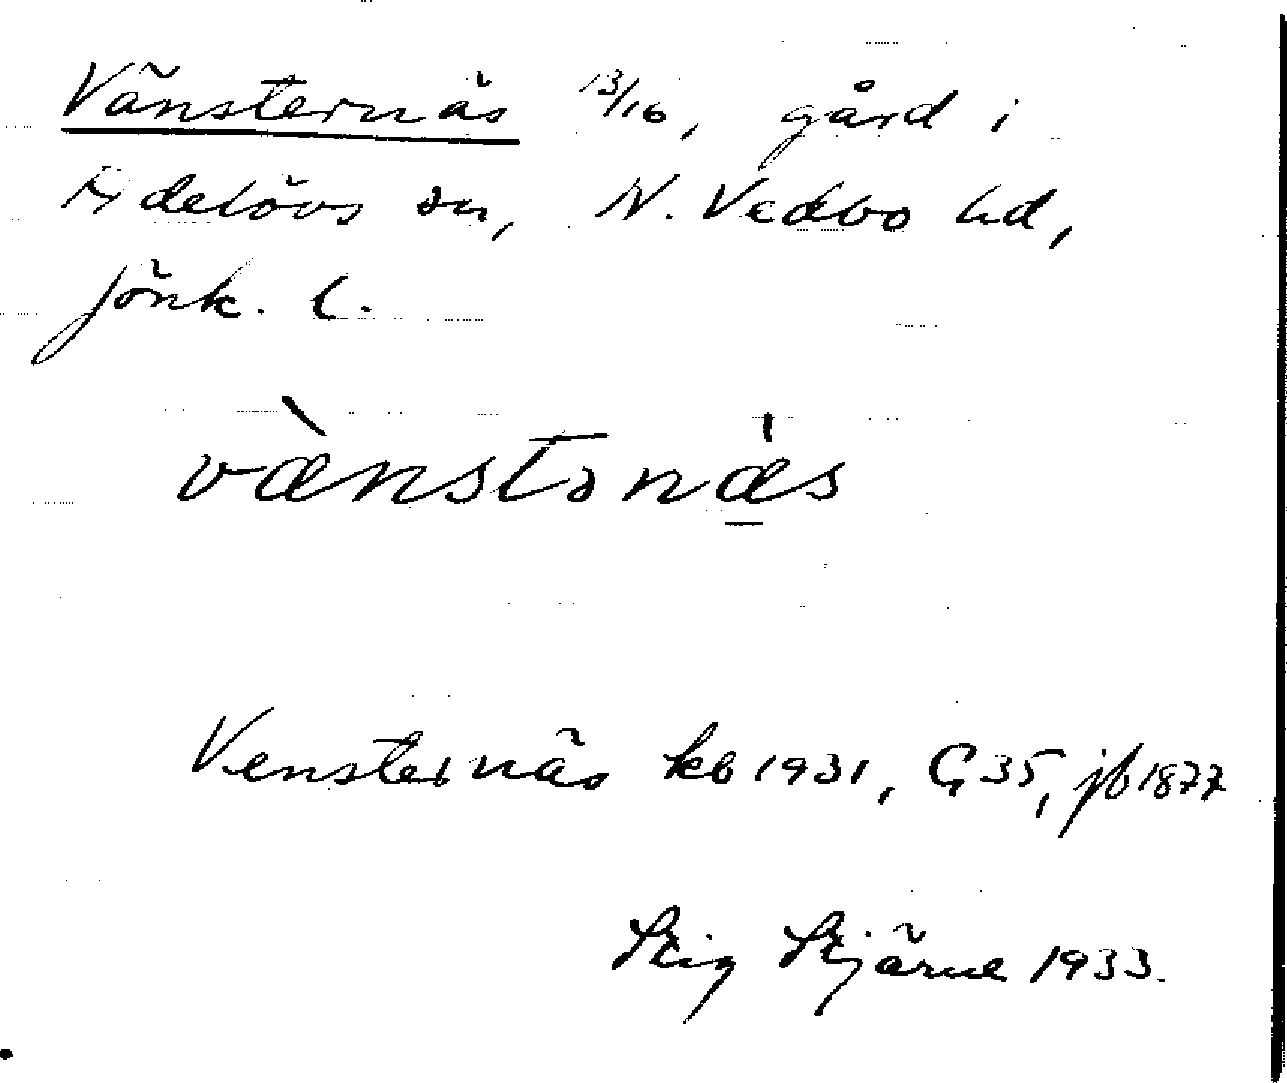 Vänsternäs 13/16, gård i
Adelövs sn, N. Vedbo hd,
Jönk. l.
væ̀nstənæ̠̍s
Vensternäs kb 1931, G 35, jb 1877
Stig Stjärne 1933.